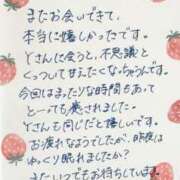 またお会いできて、
本当に嬉しかったです。
Yさんに会うと、不思議と
くっついて甘えたくなっちゃうんです。
今回はまったりな時間もあって
とっても癒されました〜
Yさんも同じだと嬉しいです。
お疲れなようでしたが、昨夜は
ゆっくり眠れましたか?
またいつでもお待ちしています。